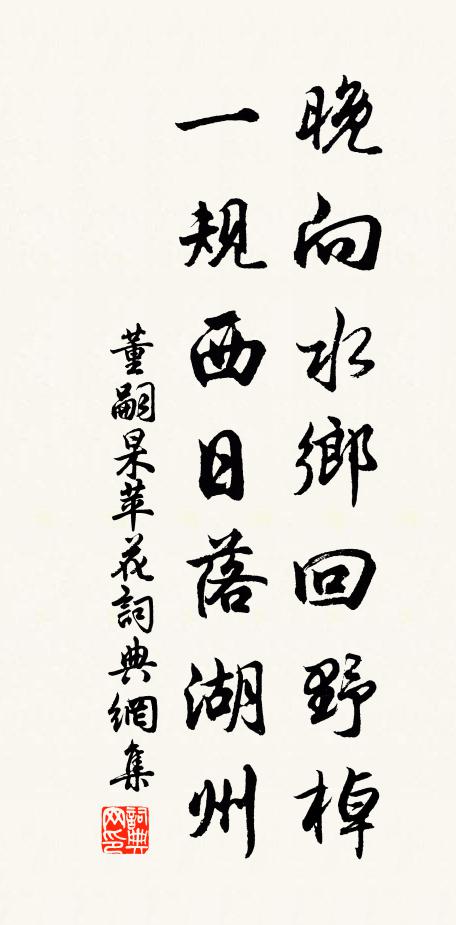 晚向水鄉回野棹
一規西日落湖州
董嗣杲苹花詞典網集
詞典网印